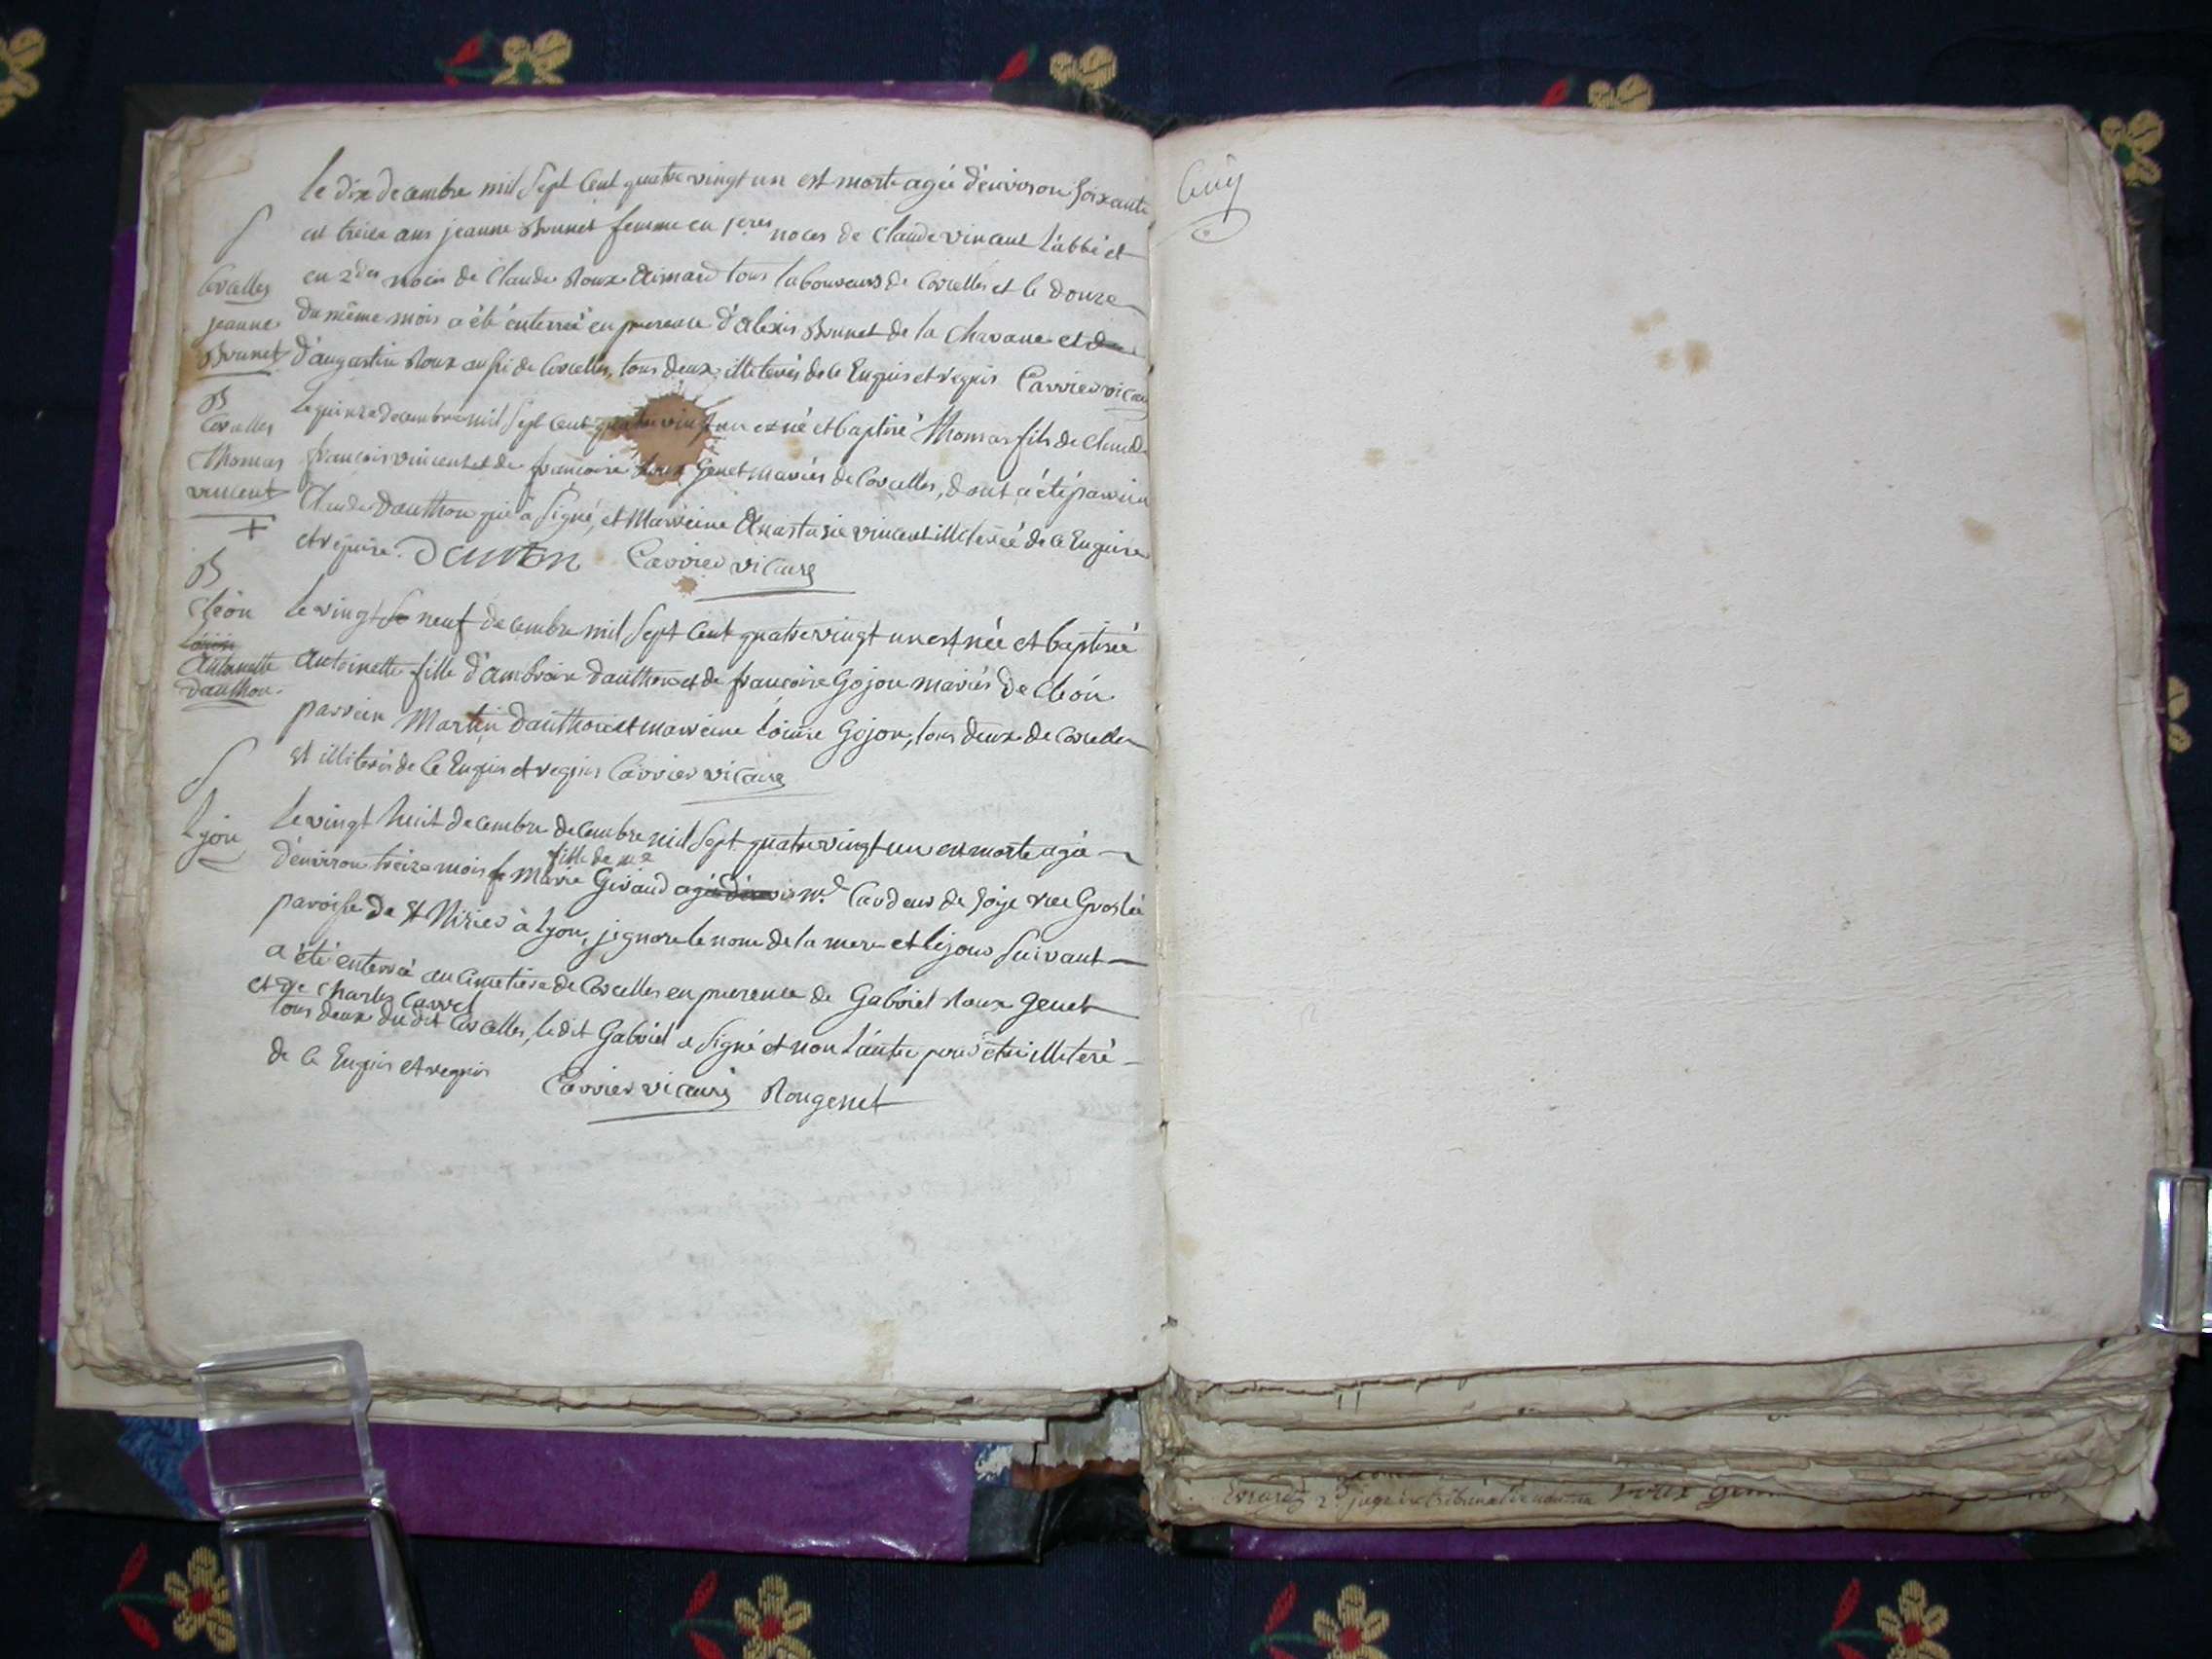 le dix decembre mil sept cent quatre vingt un est morte agée d'environ soixante
et treize ans jeanne Brunet femme en 1eres noces de Claude vincent l'abbé et
en 2des noces de Claude Roux Aimard tous laboureurs de Corcelles et le douze
du même mois a été enterrée en presence d'alexis Brunet de la Chavane et de
d'augustin Roux aussi de Corcelles, tous deux illiterés de ce Enquis et requis Carrier vicaire
S
Corcelles
jeanne
Brunet
le quinze decembre mil sept cent quatre vingt un est né et baptisé Thomas fils de Claude
françois vincent et de françoise Roux Genet mariés de Corcelles, dont a été parrein
Claude Dauthon qui a signé, et Marreine Anastasie vincent illiterée de ce Enquise
et requise. Dauton Carrier vicaire
B
Corcelles
Thomas
vincent
+
le vingt se neuf decembre mil sept cent quatre vingt un est née et baptisée
Antoinette fille d'ambroise Dauthon et de françoise Gojon mariés de Cleón
parrein Martin Dauthon et marreine Loüise Gojon, tous deux de Corcelles
et illiterés de ce Enquis et requis Carrier vicaire
B
Cleón
Loüise
Antoinette
Dauthon.
le vingt huit decembre decembre mil sept quatre vingt un est morte agée
fille de me
d'environ treize mois Marie Giraud md Cardeur de soye rue Groslée
paroisse de St Nizier à Lyon, j'ignore le nom de la mere et le jour suivant
a été enterrée au Cimetiere de Corcelles en presence de Gabriel Roux Genet
et de Charles Carrel
tous deux dudit Corcelles, le dit Gabriel a signé et non l'autre pour être illiteré
de ce Enquis et requis Carrier vicaire Rougenet
S
Lyon